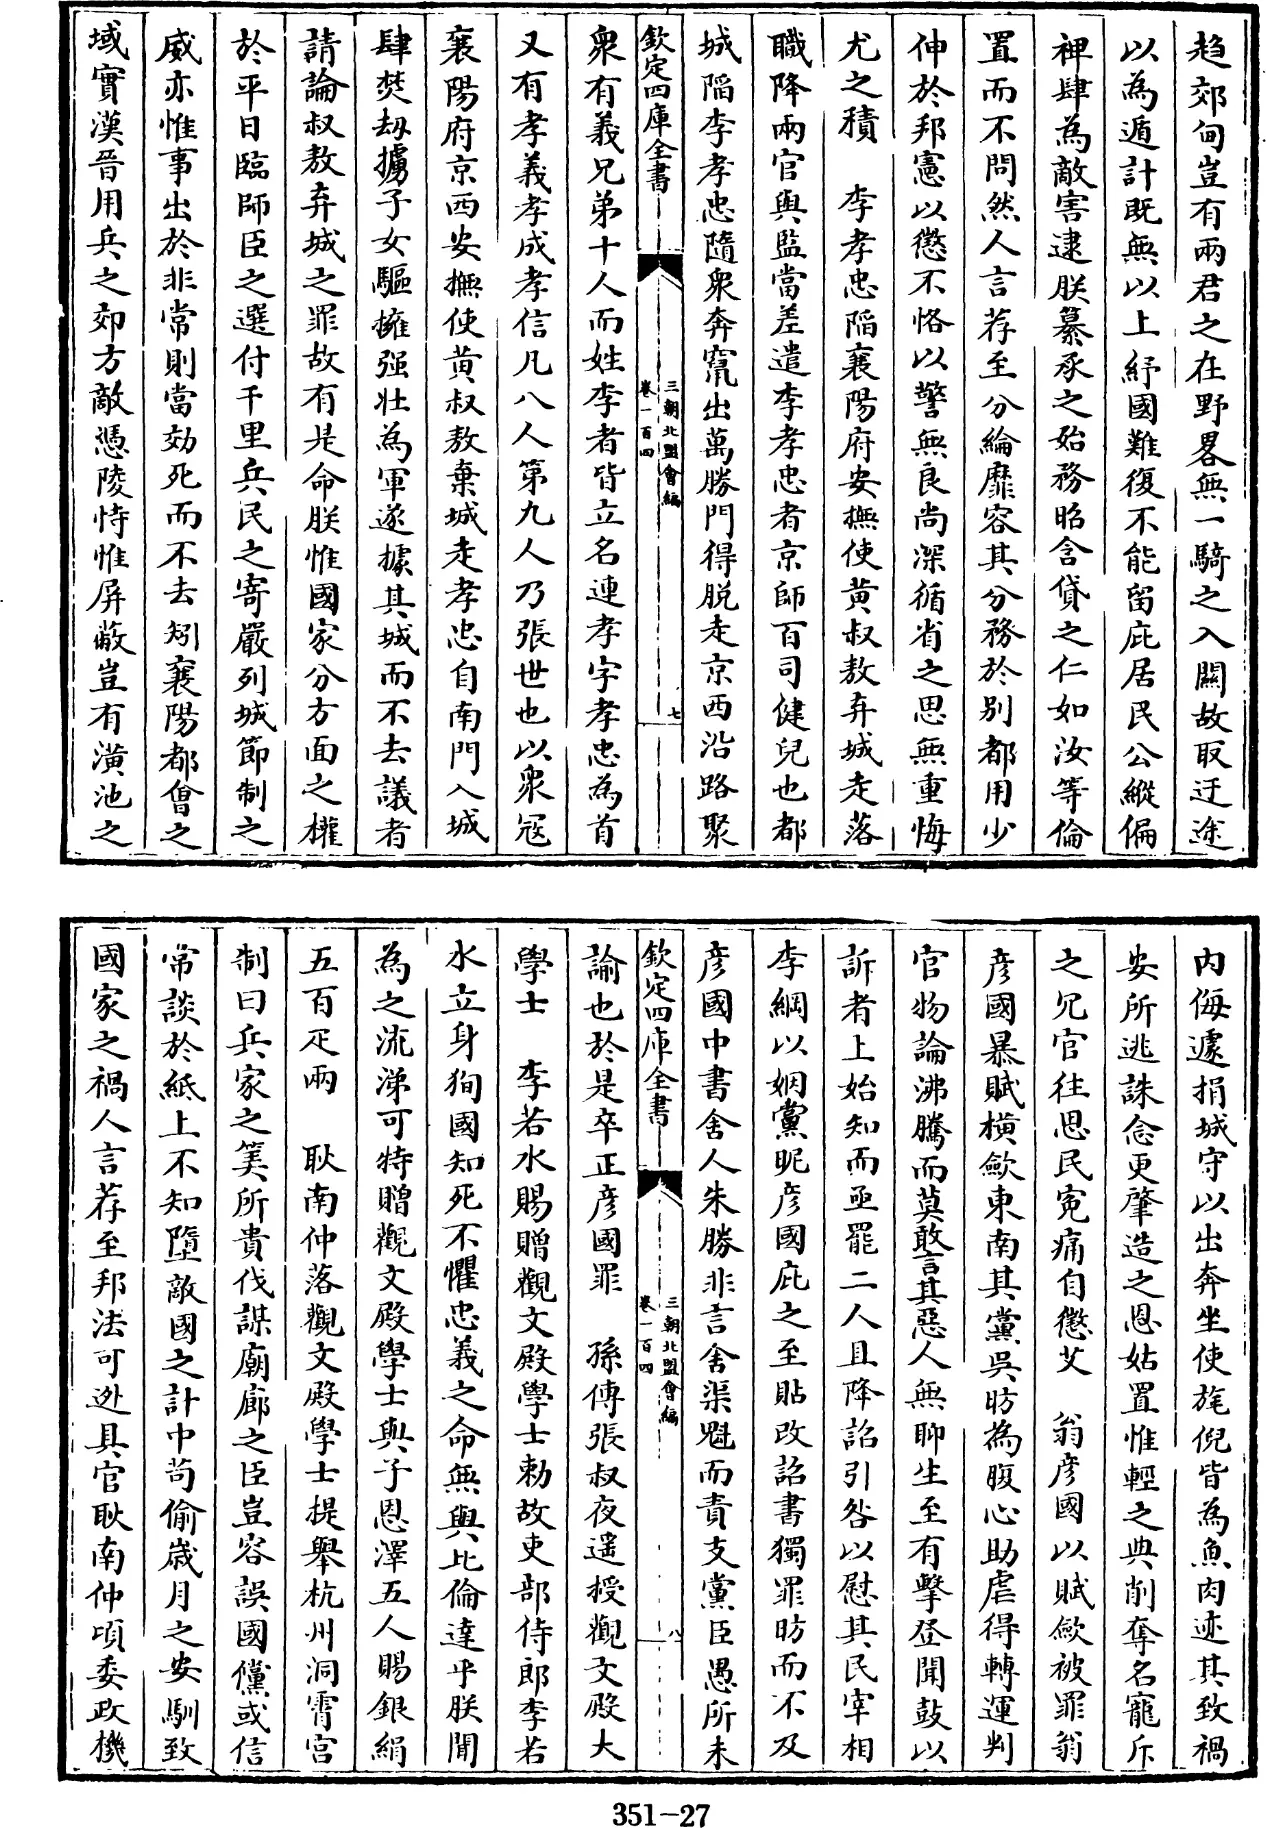 趋郊甸豈有兩君之在野畧無一騎之入關故取迂途
以為遁計既無以上紓國難復不能留庇居民公縱偏
裨肆為敵害逮朕纂承之始務昭含貸之仁如汝等倫
置而不問然人言荐至分綸靡容其分務於别都用少
伸於邦憲以懲不恪以警無良尚深循省之思無重悔
尤之積　李孝忠陷襄陽府安撫使黄叔敖弃城走落
職降兩官與監當差遣李孝忠者京師百司健兒也都
城陷李孝忠隨衆奔竄出萬勝門得脱走京西沿路聚
欽定四庫全書
三朝北盟會編
卷一百四
七
衆有義兄弟十人而姓李者皆立名連孝字孝忠為首
又有孝義孝成孝信凡八人第九人乃張世也以衆冦
襄陽府京西安撫使黄叔敖棄城走孝忠自南門入城
肆焚刼擄子女驅擁强壯為軍遂據其城而不去議者
請論叔敖弃城之罪故有是命朕惟國家分方面之權
於平日臨師臣之選付千里兵民之寄嚴列城節制之
威亦惟事出於非常則當効死而不去矧襄陽都㑹之
域實漢晉用兵之郊方敵憑陵恃惟屏蔽豈有潢池之
内侮遽捐城守以出奔坐使旄倪皆為魚肉迹其致禍
安所逃誅念更肇造之恩姑置惟輕之典削奪名寵斥
之冗官往思民寃痛自懲艾　翁彦國以賦歛被罪翁
彦國暴賦横歛東南其黨吳昉為腹心助虐得轉運判
官物論沸騰而莫敢言其惡人無聊生至有擊登聞鼓以
訴者上始知而亟罷二人且降詔引咎以慰其民宰相
李綱以姻黨昵彦國庇之至貼改詔書獨罪昉而不及
彦國中書舍人朱勝非言舍渠魁而責支黨臣愚所未
欽定四庫全書
三朝北盟會編
卷一百四
八
諭也於是卒正彦國罪　孫傅張叔夜遥授觀文殿大
學士　李若水賜贈觀文殿學士勅故吏部侍郎李若
水立身狥國知死不懼忠義之命無與比倫達乎朕聞
為之流涕可特贈觀文殿學士與子恩澤五人賜銀絹
五百疋兩　耿南仲落觀文殿學士提舉杭州洞霄宫
制曰兵家之筭所貴伐謀廟廊之臣豈容誤國儻或信
常談於紙上不知墮敵國之計中茍偷歲月之安馴致
國家之禍人言荐至邦法可逃具官耿南仲頃委政機
351-27